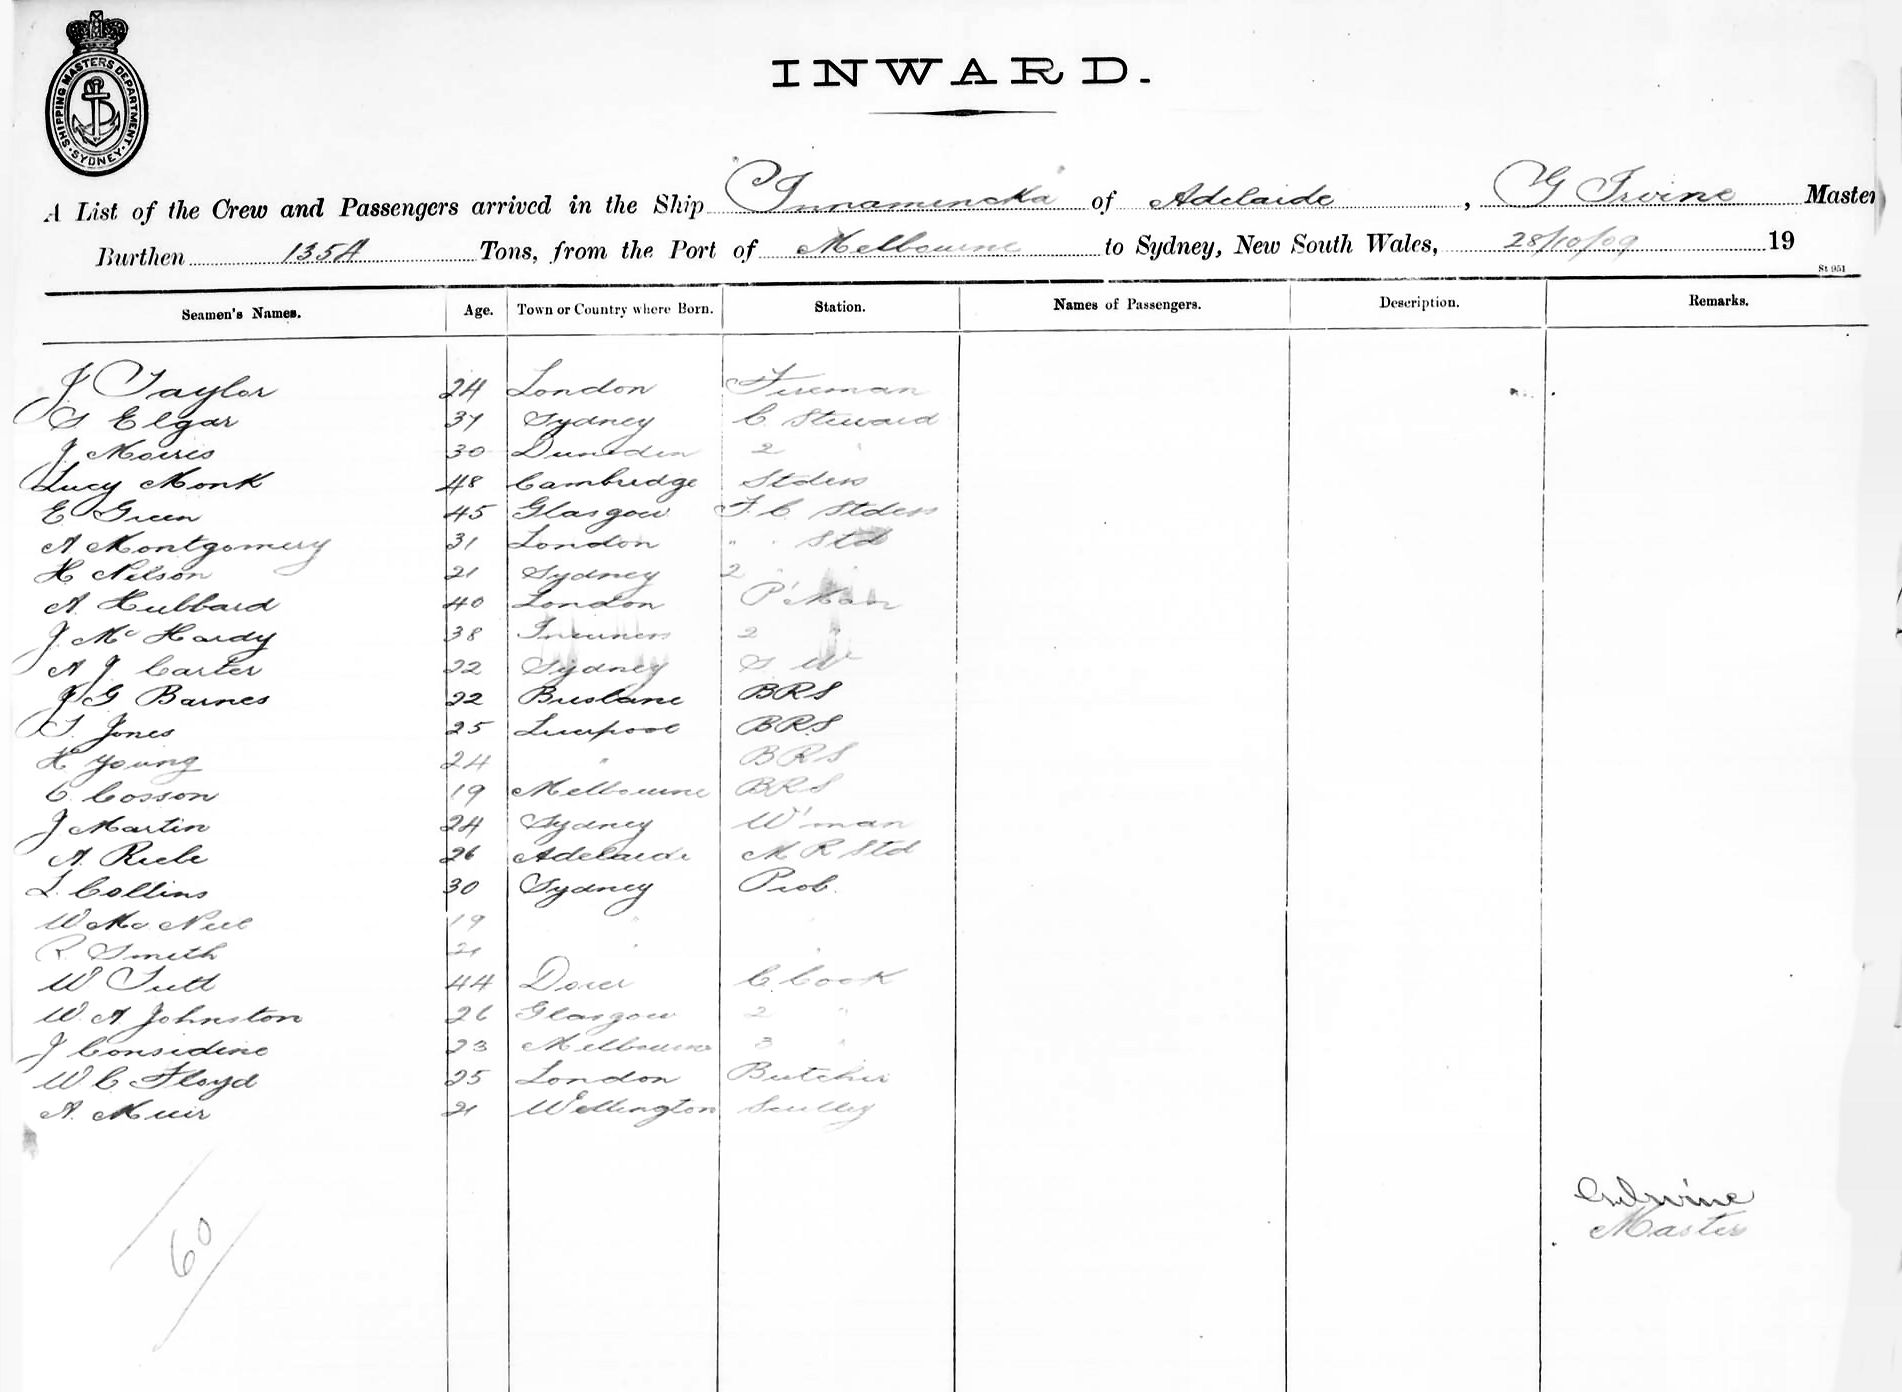 SHIPPING MASTERS DEPARTMENT · SYDNEY ·
INWARD.
A List of the Crew and Passengers arrived in the Ship Innamincka of Adelaide, G Irvine Master
Burthen 1354 Tons, from the Port of Melbourne to Sydney, New South Wales, 28/10/09 19
St 951
Seamen's Names. Age. Town or Country where Born. Station. Names of Passengers. Description. Remarks.
J Taylor 24 London Fireman
S Elgar 37 Sydney C. Steward
J Morris 30 Dunedin 2 "
Lucy Monk 48 Cambridge Stdess
E Green 45 Glasgow F. C. Stdess
A Montgomery 31 London " " Std
H Nilson 21 Sydney 2 " "
A. Hubbard 40 London P'Man
J. Mc Hardy 38 Inverness 2 "
A J Carter 22 Sydney S W
J G Barnes 22 Brisbane BRS
T. Jones 25 Liverpool BRS
H Young 24 " BRS
C. Cosson 19 Melbourne BRS
J Martin 24 Sydney W'man
A. 26 Adelaide M R Std
L. Collins 30 Sydney Prob.
W Mc Neil 19 " "
R. Smith 21 " "
W Tutt 44 Dover C. Cook
W. A. Johnston 26 Glasgow 2 "
J Considine 23 Melbourne 3 "
W C Floyd 25 London Butcher
A. Muir 21 Wellington Scully
G Irvine
Master
60